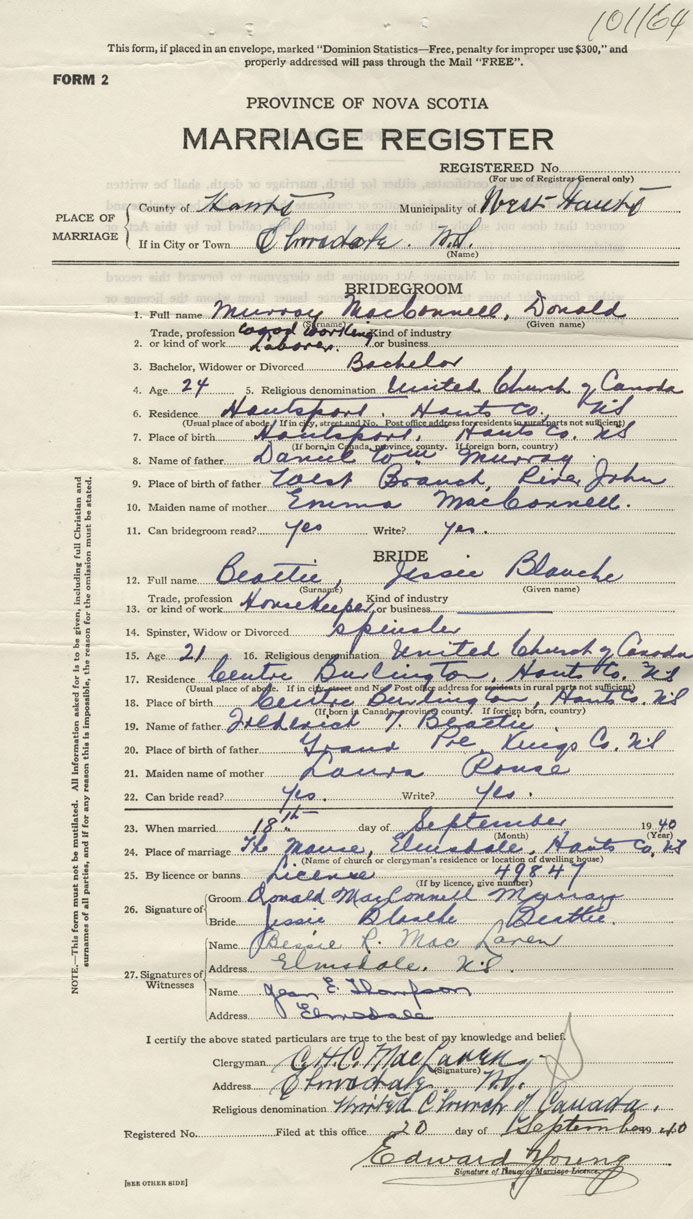 101164
This form, if placed in an envelope, marked "Dominion Statistics—Free, penalty for improper use $300," and
properly addressed will pass through the Mail "FREE".
FORM 2
PROVINCE OF NOVA SCOTIA
MARRIAGE REGISTER
REGISTERED No.
(For use of Registrar General only)
PLACE OF MARRIAGE
County of Hants Municipality of West Hants
If in City or Town Elmsdale. N.S.
(Name)
BRIDEGROOM
1. Full name Murray MacConnell, Donald
(Surname) (Given name)
Trade, profession Wood Working Kind of industry
2. or kind of work Laborer. or business
3. Bachelor, Widower or Divorced Bachelor
4. Age 24 5. Religious denomination United Church of Canada
6. Residence Hantsport, Hants Co., NS
(Usual place of abode. If in city, street and No. Post office address for residents in rural parts not sufficient)
7. Place of birth Hantsport, Hants Co. NS
(If born in Canada, province, county. If foreign born, country)
8. Name of father Daniel Wm Murray
9. Place of birth of father West Branch, River John
10. Maiden name of mother Emma MacConnell.
11. Can bridegroom read? yes Write? yes.
BRIDE
12. Full name Beattie, Jessie Blanche
(Surname) (Given name)
Trade, profession Kind of industry
13. or kind of work Housekeeper, or business
14. Spinster, Widow or Divorced spinster
15. Age 21 16. Religious denomination United Church of Canada
17. Residence Centre Burlington, Hants Co. NS
(Usual place of abode. If in city, street and No. Post office address for residents in rural parts not sufficient)
18. Place of birth Centre Burlington, Hants Co. NS
(If born in Canada, province, county. If foreign born, country)
19. Name of father Frederick T. Beattie
20. Place of birth of father Grand Pre, Kings Co. NS
21. Maiden name of mother Laura Rouse
22. Can bride read? yes. Write? yes.
23. When married 18th day of September 1940
(Month) (Year)
24. Place of marriage The Manse, Elmsdale, Hants Co, NS
(Name of church or clergyman's residence or location of dwelling house)
25. By licence or banns License 49847
(If by licence, give number)
26. Signature of Groom Donald MacConnell Murray
Bride Jessie Blanche Beattie.
27. Signatures of Witnesses
Name Bessie R. MacLaren
Address Elmsdale. N.S.
Name Jean E. Thompson
Address Elmsdale
I certify the above stated particulars are true to the best of my knowledge and belief.
Clergyman C.H.C. MacLaren
(Signature)
Address Elmsdale N.S.
Religious denomination United Church of Canada.
Registered No. Filed at this office 20 day of September 1940
Edward Young
Signature of Issuer of Marriage Licence
[SEE OTHER SIDE]
NOTE.—This form must not be mutilated. All information asked for is to be given, including full Christian and
surnames of all parties, and if for any reason this is impossible, the reason for the omission must be stated.